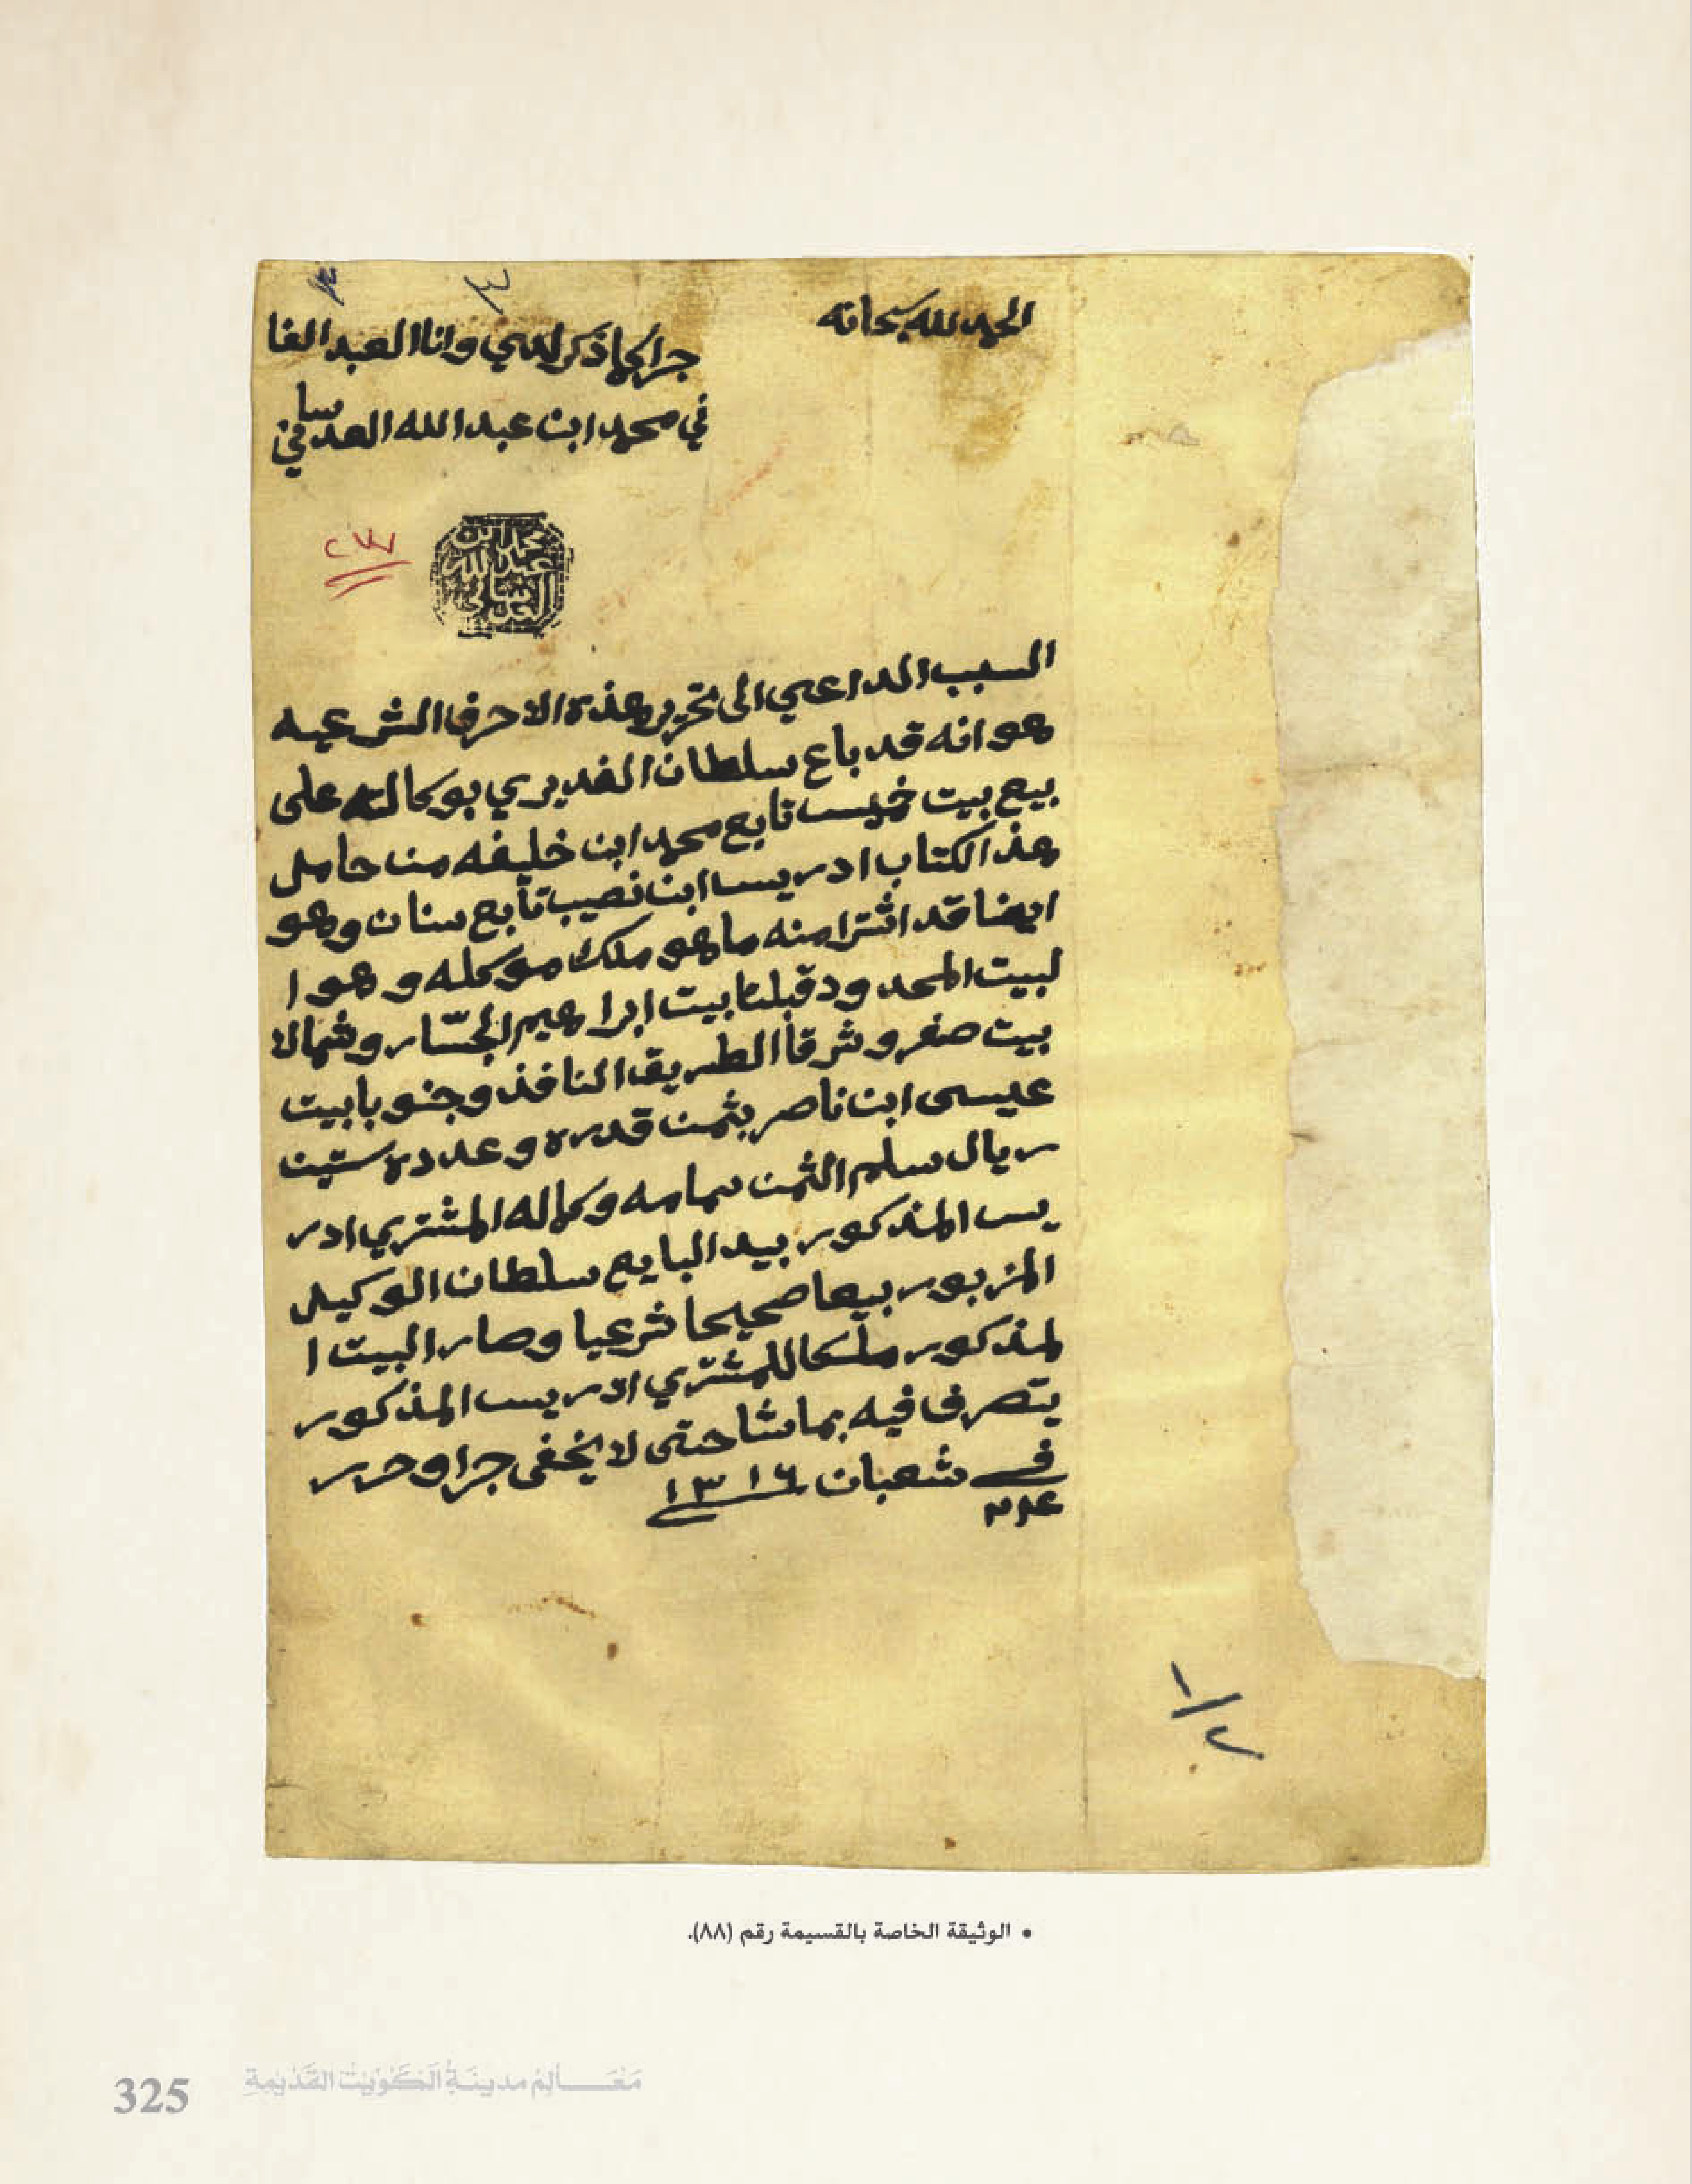 الحمد لله سبحانه
جرا كما ذكر لدي وانا العبد الفا
ني محمد ابن عبدالله العدساني
٢٧٧
محمد ابن عبدالله العدساني
السبب الداعي الى تحرير هذة الاحرف الشرعيه
هو انه قد باع سلطان الغديري بوكالته على
بيع بيت خميس تابع محمد ابن خليفه من حامل
هذ الكتاب ادريس ابن نصيب تابع سنان وهو
ايضا قد اشترا منه ما هو ملك موكله وهو ا
لبيت المحدود قبلتا بيت ابراهيم الجسّار وشمالا
بيت صفر وشرقا الطريق النافذ وجنوبا بيت
عيسى ابن ناصر بثمن قدره وعدده ستين
ريال سلم الثمن بتمامه وكماله المشتري ادر
يس المذكور بيد البايع سلطان الوكيل
المزبور بيعا صحيحا شرعيا وصار البيت ا
لمذكور ملكا للمشتري ادريس المذكور
يتصرف فيه بما شا حتى لا يخفى جرا وحرر
في شعبان ١٣١٦
١/٢
• الوثيقة الخاصة بالقسيمة رقم (٨٨).
325 مَعَالِمُ مدينَةِ الكُوَيْت القَدِيمَةِ